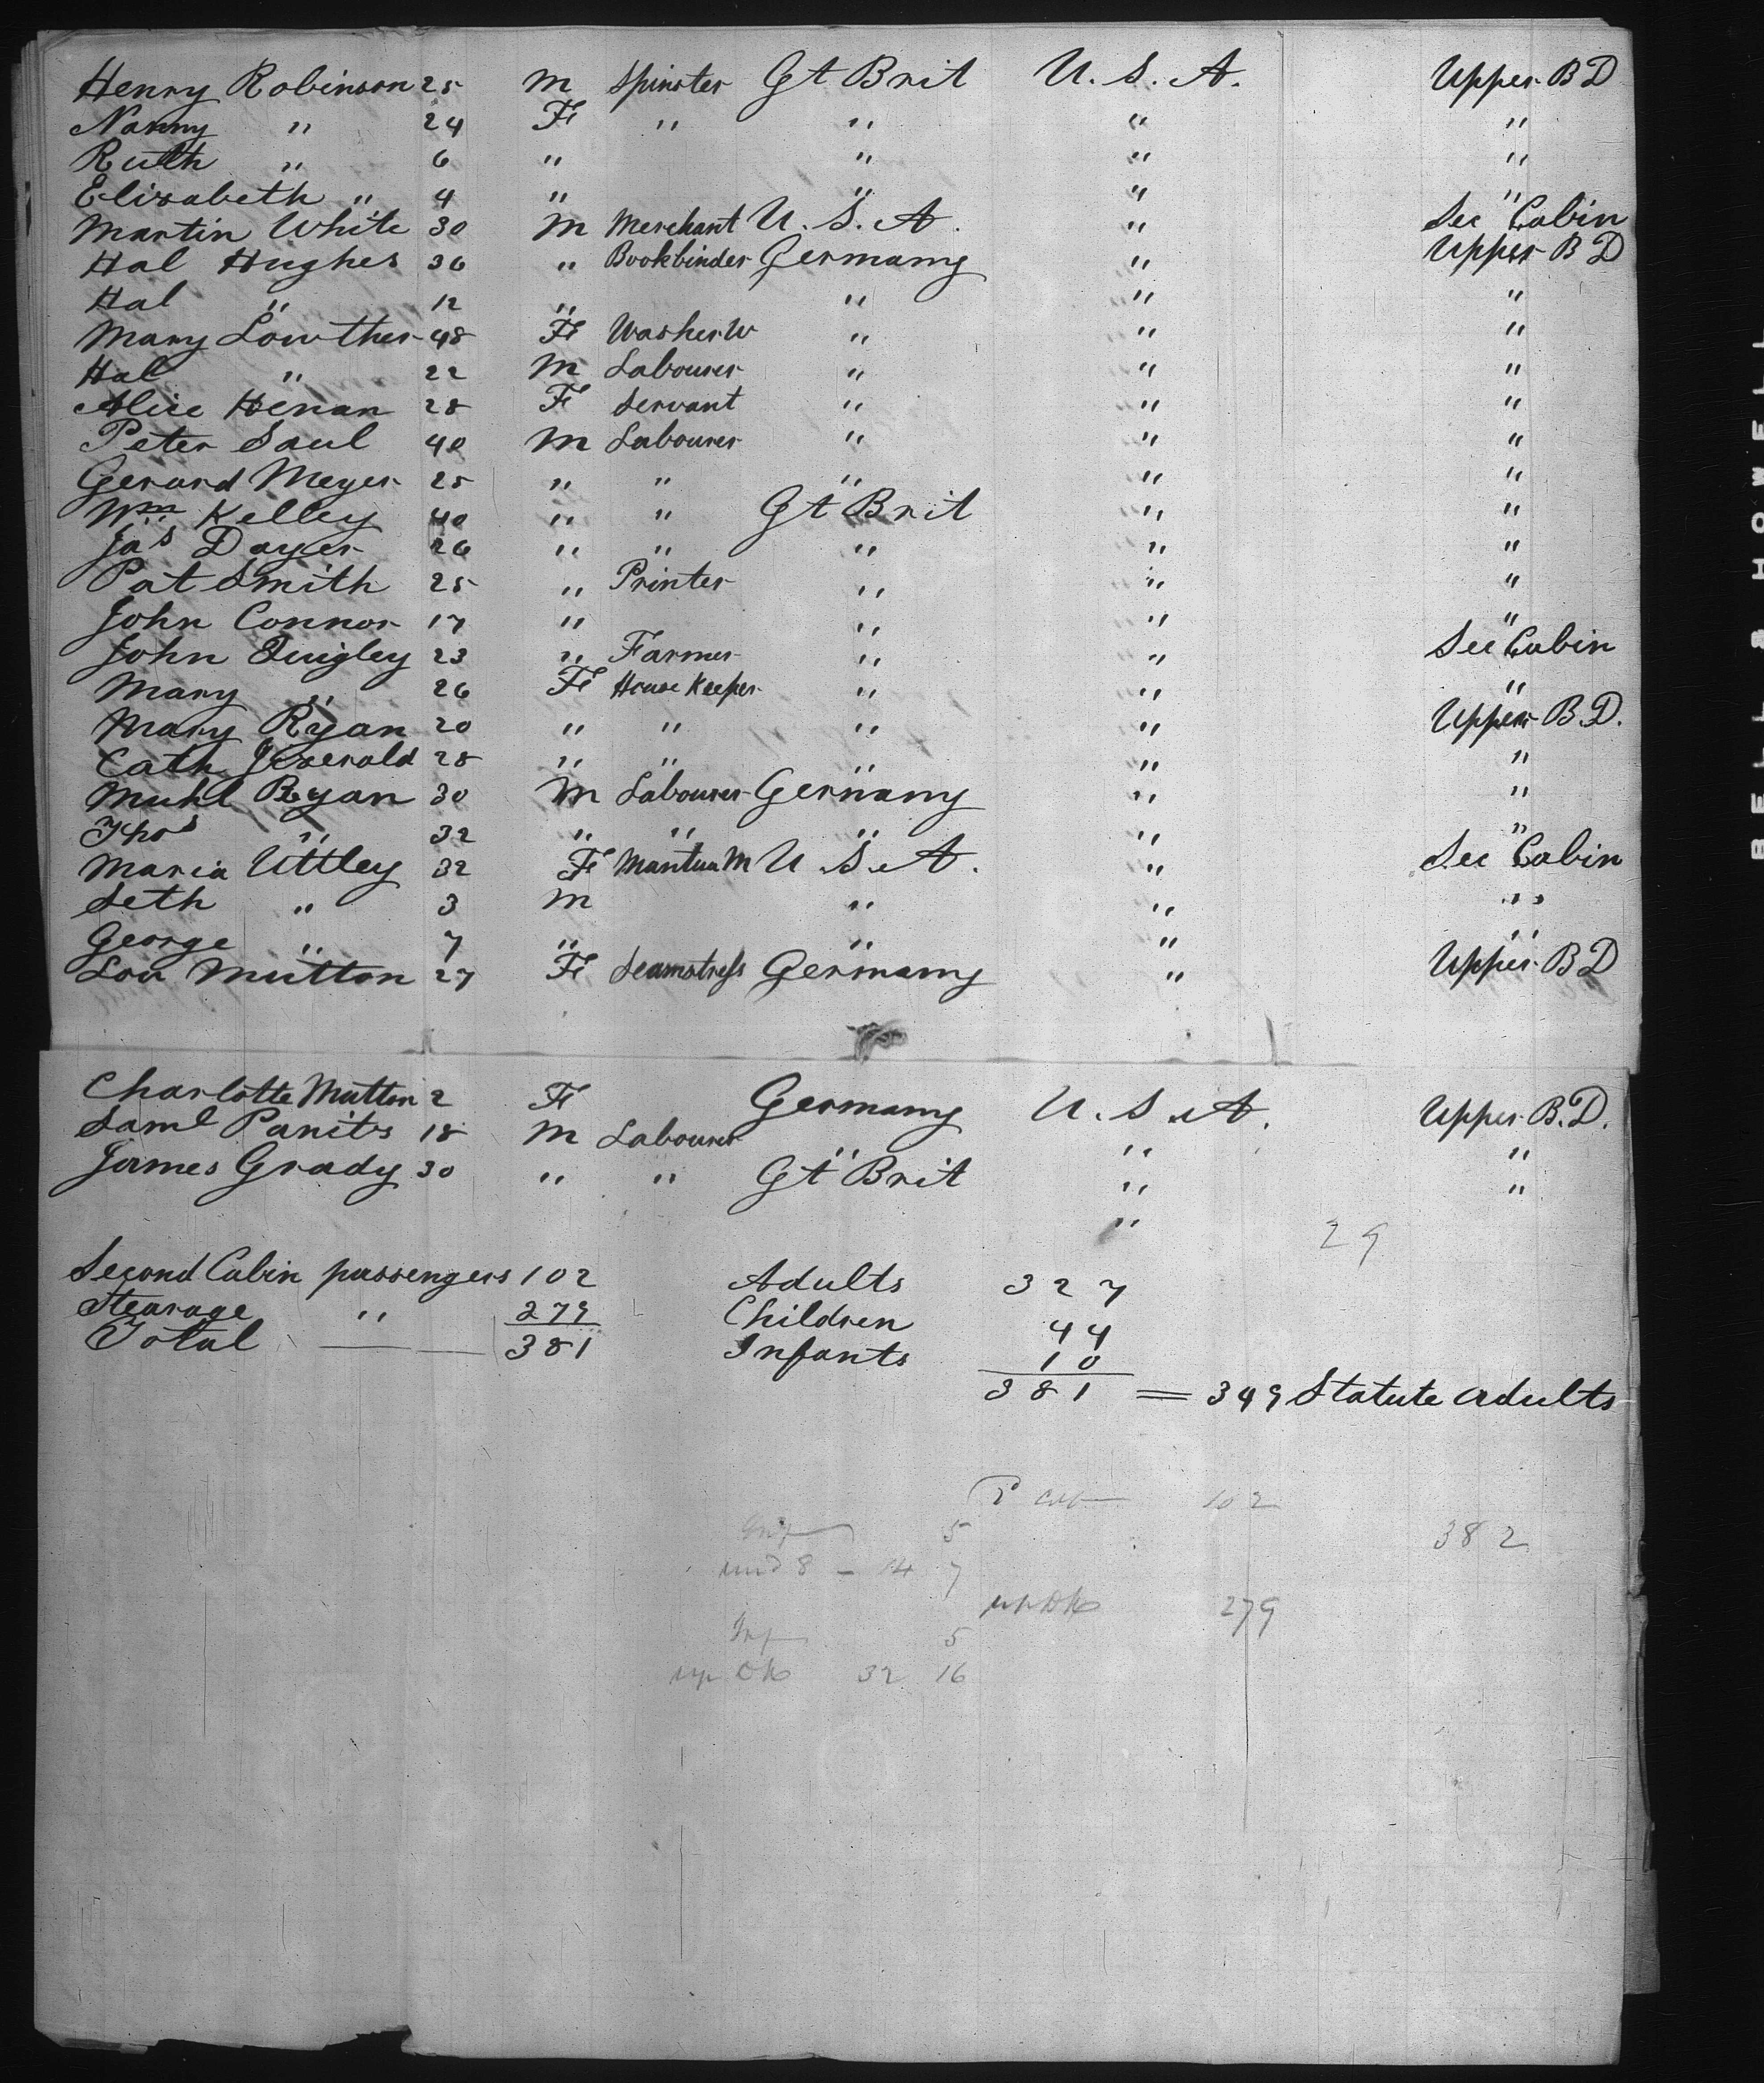 Henry Robinson 25 M Spinster Gt Brit U.S.A. Upper B D
Nanny " 24 Fe " " " "
Ruth " 6 " " " "
Elisabeth " 4 " " " "
Martin White 30 M Merchant U.S.A. " Sec Cabin
Hal Hughes 36 " Bookbinder Germany " Upper B D
Hal " 12 " " " "
Mary Lowther 48 Fe Washer W " " "
Hal " 22 M Labourer " " "
Alice Henan 28 F Servant " " "
Peter Saul 40 M Labourer " " "
Gerard Meyer 25 " " " " "
Wm Kelley 40 " " Gt Brit " "
Jas Dayer 26 " " " " "
Pat Smith 25 " Printer " " "
John Connor 17 " " " "
John Quigley 23 " Farmer " " Sec Cabin
Mary " 26 Fe House Keeper " " "
Mary Ryan 20 " " " " Upper B.D.
Cath 28 " " " " "
Muhl Ryan 30 M Labourer Germany " "
Thos " 32 " " " " "
Maria Uttley 32 Fe Mantua M U.S.A. " Sec Cabin
Seth " 3 M " " "
George " 7 " " " "
Lou Mutton 27 Fe Seamstress Germany " Upper B D
Charlotte Mutton 2 Fe Germany U.S.A. Upper B.D.
Saml Panits 18 M Labourer " " "
James Grady 30 " " Gt Brit " "
"
29
Second Cabin passengers 102 Adults 327
Stearage " 279 Children 44
Total 381 Infants 10
381 = 349 Statute adults
2 cab 102
Inf 5 382
und 8 - 14 7
up Dk 279
Inf 5
up Dk 32 16
BELL & HOWELL